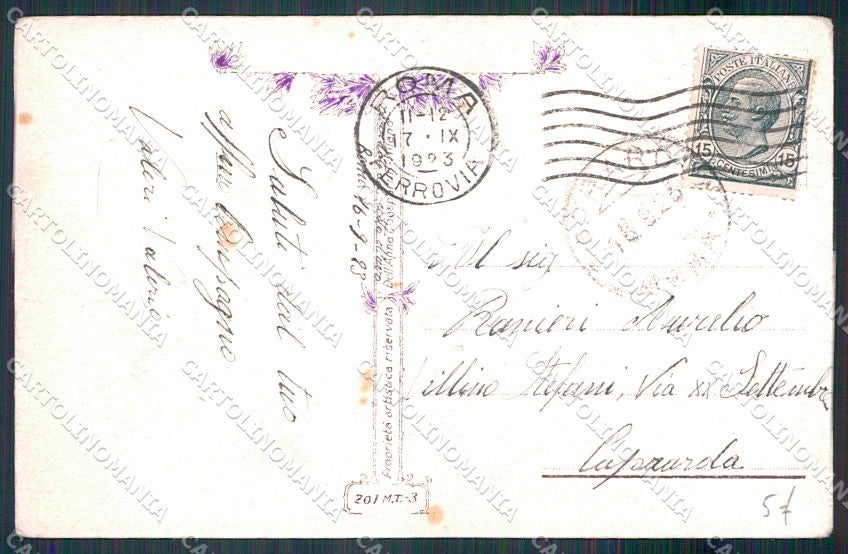 Saluti dal tuo
affmo compagno
Valeri Valerio
Roma 16-9-23
Proprietà artistica riservata
201 M.T.-3
ROMA
11-12
17·IX
1923
FERROVIA
POSTE ITALIANE
15 CENTESIMI 15
Al sig
Ranieri Aurelio
Villino Stefani, Via XX Settembre
5f
CARTOLINOMANIA